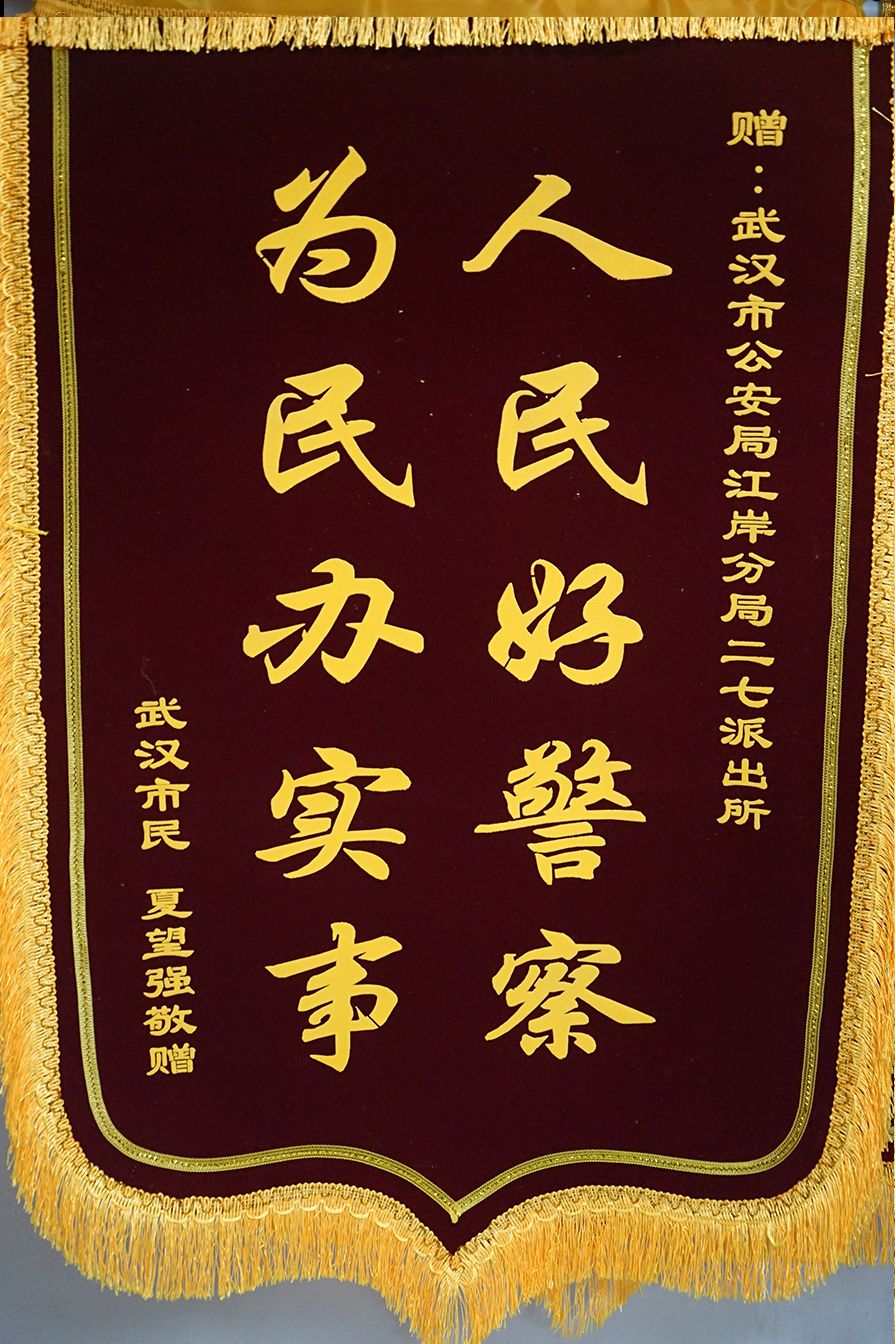 赠：武汉市公安局江岸分局二七派出所
人民好警察
为民办实事
武汉市民 夏望强敬赠